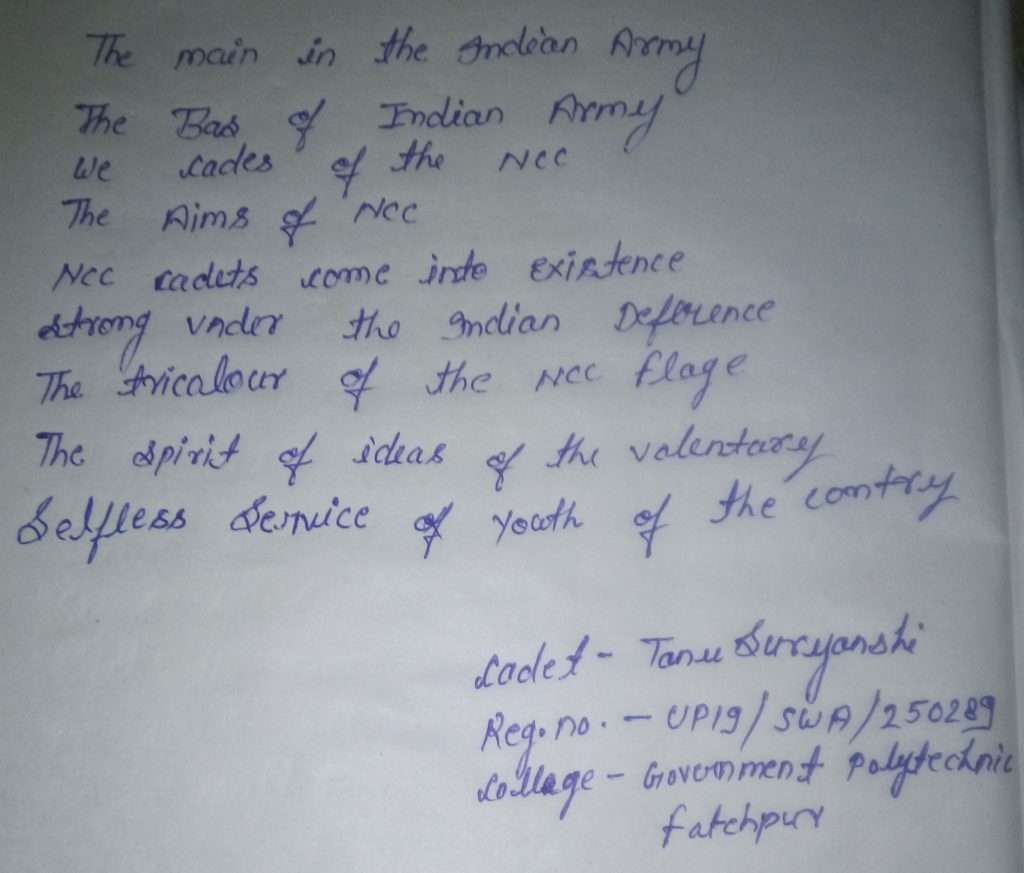 The main in the Indian Army
The Bas of Indian Army
We cades of the NCC
The Aims of NCC
NCC cadets come into existence
strong under the Indian Deference
The tricalour of the NCC flage
The spirit of ideas of the valentary
Selfless Service of youth of the contry
Cadet - Tanu Suryanshi
Reg. no. - UP19/SWA/250289
Collage - Government Polytechnic
fatehpur